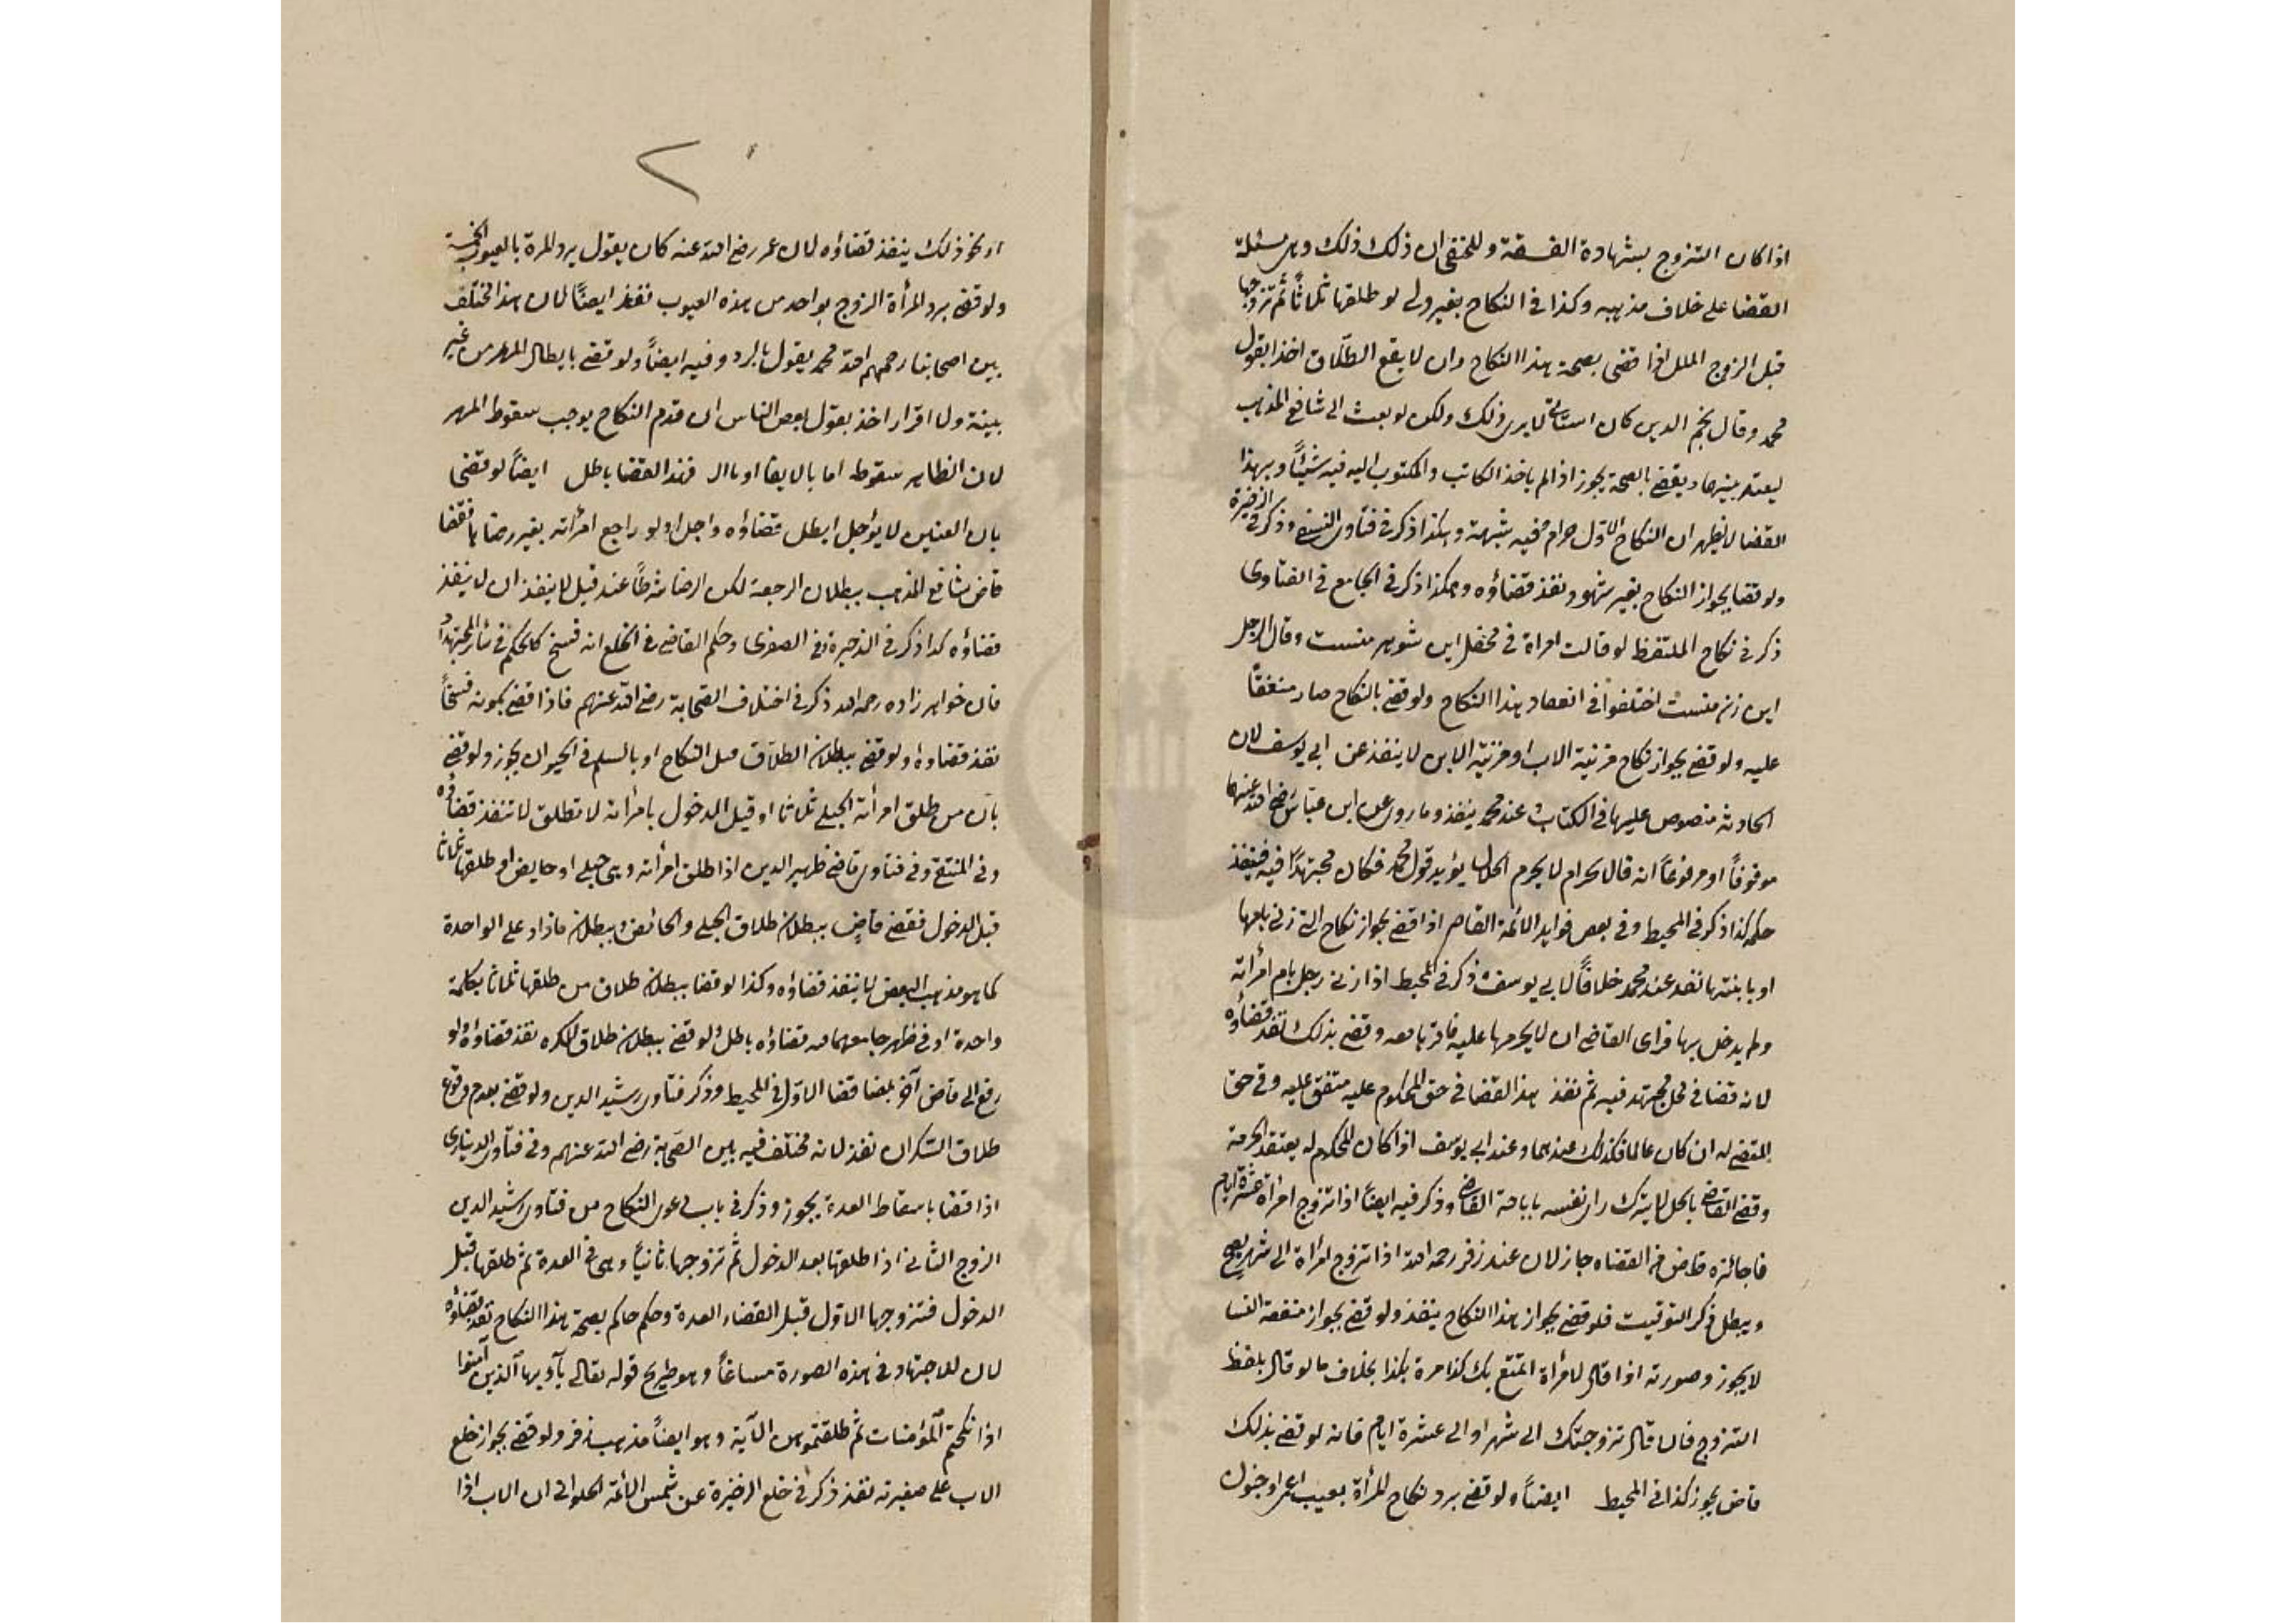 اذا كان التزوج بشهادة الفسقة وللحنفى ان ذلك ذلك وهى مسئلة
القضا على خلاف مذهبه وكذا فى النكاح بغير ولى لو طلقها ثلاثاً ثم تزوجها
قبل الزوج الملل اذا قضى بصحة هذا النكاح وان لا يقع الطلاق اخذا بقول
محمد وقال نجم الدين كان استاذى لا يرى ذلك ولكن لو بعث الى شافعى المذهب
ليعقد بينهما ويقضى بالصحة يجوز اذا لم ياخذ الكاتب والمكتوب اليه فيه شيئاً وبهذا
القضا لا يظهر ان النكاح الاول حرام فيه شبهة وهكذا ذكر فى فتاوى النسفى وذكر فى الذخيرة
ولو قضا بجواز النكاح بغير شهود نفذ قضاؤه وهكذا ذكر فى الجامع فى الفتاوى
ذكر فى نكاح الملتقط لو قالت امراة فى محفل اين شوهر منست وقال الرجل
اين زن منست اختلفوا فى انعقاد هذا النكاح ولو قضى بالنكاح صار متفقاً
عليه ولو قضى بجواز نكاح مزنية الاب او مزنية الابن لا ينفذ عن ابى يوسف لان
الحادثه منصوص عليها فى الكتاب وعند محمد ينفذ وما روى عن ابن عباس رضى الله عنهما
موقوفاً او مرفوعاً انه قال الحرام لا يحرم الحلال يؤيد قول محمد فكان مجتهداً فيه فينفذ
حكمه كذا ذكر فى المحيط وفى بعض فوايد الائمة القاضى اذا قضى بجواز نكاح التى زنى بامها
او بابنتها نفذ عند محمد خلافاً لابى يوسف وذكر فى المحيط اذا زنى رجل بام امرأته
ولم يدخل بها فراى القاضى ان لا يحرمها عليه فاقرها معه وقضى بذلك نفذ قضاؤه
لانه قضا فى محل مجتهد فيه ثم نفذ هذا القضا فى حق المحكوم عليه متفق عليه وفى حق
المقضى له ان كان عالما فكذلك عندهما وعند ابى يوسف اذا كان المحكوم له يعتقد الحرمة
وقضى القاضى بالحل لا يترك راى نفسه باباحة القاضى وذكر فيه ايضاً اذا تزوج امرأة عشرة ايام
فاجازه قاض فى القضاه جاز لان عند زفر رحمه الله اذا تزوج امرأة الى شهر يصح
ويبطل ذكر التوقيت فلو قضى بجواز هذا النكاح ينفذ ولو قضى بجواز متعة النسا
لا يجوز وصورته اذا قال لامرأة اتمتع بك كذا مرة بكذا بخلاف ما لو قال بلفظ
التزوج فان قال تزوجتك الى شهر او الى عشرة ايام فانه لو قضى بذلك
قاض يجوز كذا فى المحيط ايضاً ولو قضى برد نكاح المرأة بعيب اعمى او جنون
او نحو ذلك ينفذ قضاؤه لان عمر رضى الله عنه كان يقول يرد المرة بالعيوب الخمسة
ولو قضى برد المرأة الزوج بواحد من هذه العيوب نفذ ايضاً لان هذا مختلف
بين اصحابنا رحمهم الله محمد يقول بالرد وفيه ايضاً ولو قضى بابطال المهر من غير
بينة ولا اقرار اخذ بقول بعض الناس ان قدم النكاح يوجب سقوط المهر
لان الظاهر سقوطه اما بالايفا او بالا فهذا القضا باطل ايضاً لو قضى
بان العنين لا يؤجل ابطل قضاؤه واجل ولو راجع امرأته بغير رضاها فقضا
قاض شافعى المذهب ببطلان الرجعة لكن الرضا شرطاً عنده قيل لا ينفذ ان لا ينفذ
قضاؤه كذا ذكر فى الذخيرة وفى الصغرى وحكم القاضى فى الخلع انه فسخ كالحكم فى سائر المجتهدات
فان خواهر زاده رحمه الله ذكر فى اختلاف الصحابة رضى الله عنهم فاذا قضى بكونه فسخاً
نفذ قضاؤه ولو قضى ببطلان الطلاق قبل النكاح او بالسلم فى الحيوان يجوز ولو قضى
بان من طلق امرأته الحبلى ثلاثا او قبل الدخول بامرأته لا تطلق لا تنفذ قضاؤه
وفى المنتقى وفى فتاوى قاضى ظهير الدين اذا طلق امرأته وهى حبلى او حايض او طلقها ثلاثا
قبل الدخول فقضى قاض ببطلان طلاق الحبلى والحائض وببطلان ما زاد على الواحدة
كما هو مذهب البعض لا ينفذ قضاؤه وكذا لو قضا ببطلان طلاق من طلقها ثلاثا بكلمة
واحدة او فى طهر جامعها فيه قضاؤه باطل ولو قضى ببطلان طلاق المكره نفذ قضاؤه ولو
رفع الى قاض آخر بمضا قضا الاول فى المحيط وذكر فتاوى رشيد الدين ولو قضى بعدم وقوع
طلاق السكران نفذ لانه مختلف فيه بين الصحابة رضى الله عنهم وفى فتاوى الدينارى
اذا قضا باسقاط العدة يجوز وذكر فى باب دعوى النكاح من فتاوى رشيد الدين
الزوج الثانى اذا طلقها بعد الدخول ثم تزوجها ثانياً وهى فى العدة ثم طلقها قبل
الدخول فتزوجها الاول قبل القضاء العدة وحكم حاكم بصحة هذا النكاح نفذ قضاؤه
لان للاجتهاد فى هذه الصورة مساغاً وهو صريح قوله تعالى يآ ايها الذين آمنوا
اذا نكحتم المؤمنات ثم طلقتموهن الآية وهو ايضاً مذهب زفر ولو قضى بجواز خلع
الاب على صغيرته نفذ ذكر فى خلع الذخيرة عن شمس الائمة الحلوانى ان الاب اذا